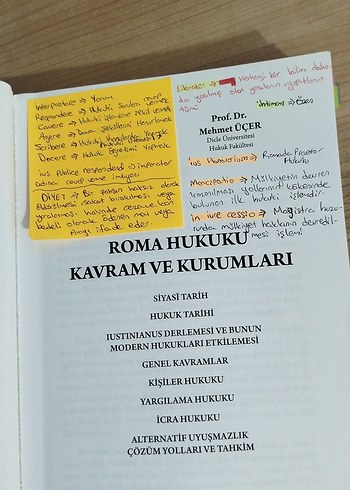 Interpretere => Yorum
Respondere => Hukuki Sorulara cevap vermek
Cavere => Hukuki işlemlere şekil vermek
Agere => Dava şekillerini Hazırlamak
Scribere => Hukuki
Docere => Hukuk Öğretimi Yapmak
ius Publice respondendi => imparator
adına cevap verme imtiyazı
DİYET => Bir şahsın haksız olarak
öldürülmesi, sakat bırakılması veya
yaralanması halinde cezave kan
bedeli olarak ödenen mal veya
Parayı ifade eder.
Literatür => Herhangi bir bilim dalın-
da yazılmış olan eserlerin
Prof. Dr.
Mehmet ÜÇER
Dicle Üniversitesi
Hukuk Fakültesi
ius Honorarium => Romada Praetor
Hukuku
Mancipatio => Mülkiyetin devren
kazanılması yollarının kökeninde
bulunan ilk hukuki işlemdir.
in iure cessio => Magistra huzu-
runda mülkiyet hakkının devredil-
mesi işlemi
ROMA HUKUKU
KAVRAM VE KURUMLARI
SİYASİ TARİH
HUKUK TARİHİ
IUSTINIANUS DERLEMESİ VE BUNUN
MODERN HUKUKLARI ETKİLEMESİ
GENEL KAVRAMLAR
KİŞİLER HUKUKU
YARGILAMA HUKUKU
İCRA HUKUKU
ALTERNATİF UYUŞMAZLIK
ÇÖZÜM YOLLARI VE TAHKİM